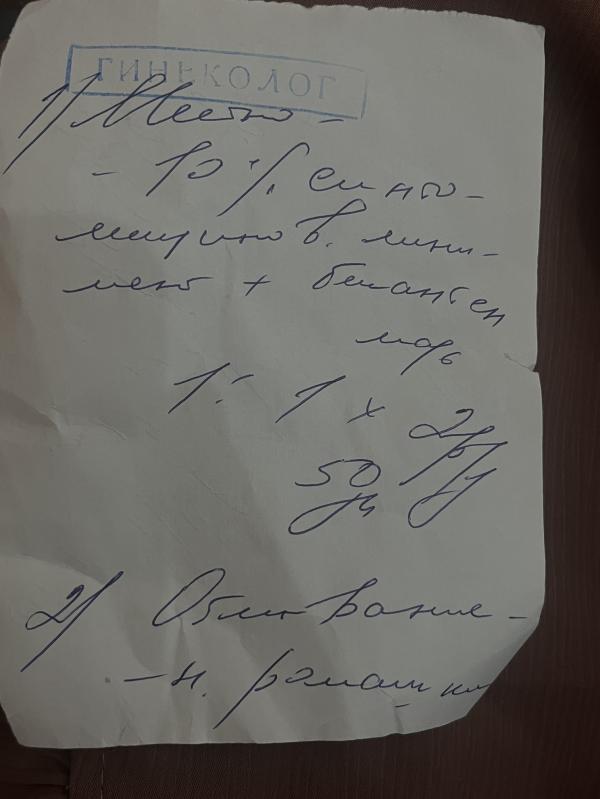 ГИНЕКОЛОГ
1) Местно -
- 10% синто-
мицинов. лини-
мент + бепантен
мазь
1:1 x 2р/д
5д
2) Обмывание -
- н. ромашки